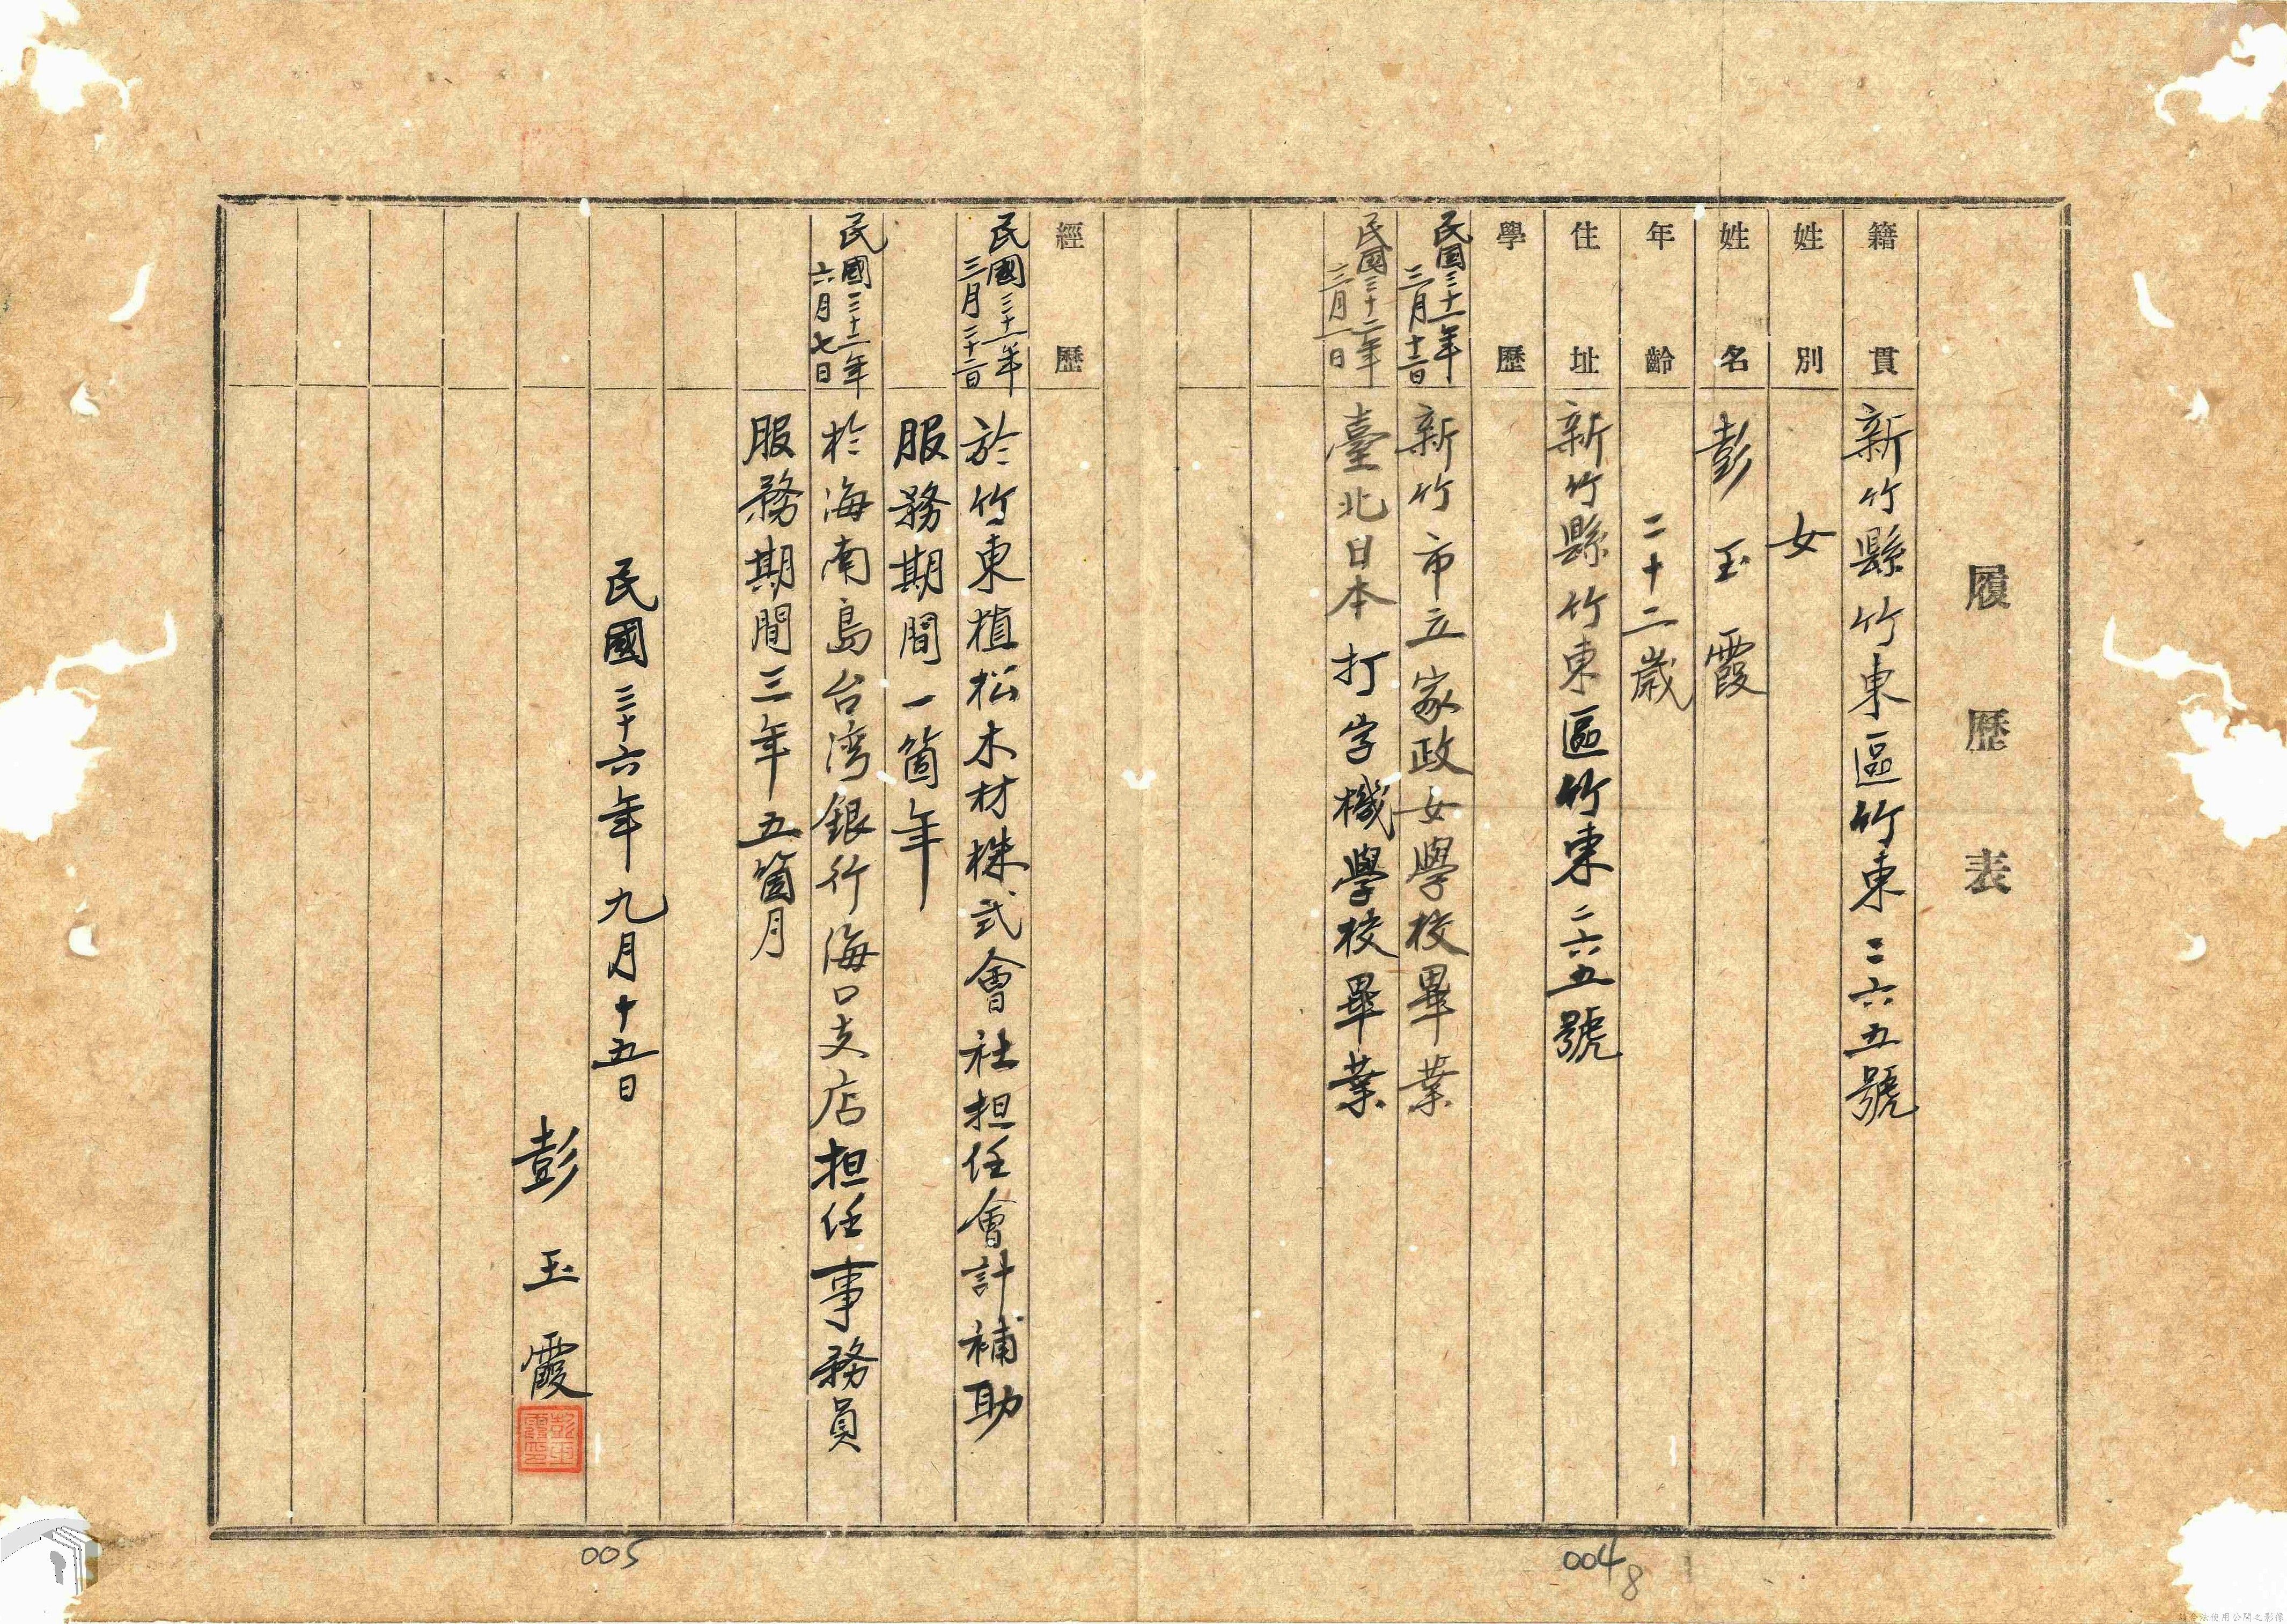 履歷表
籍貫 新竹縣竹東區竹東二六五號
姓別 女
姓名 彭玉霞
年齡 二十二歲
住址 新竹縣竹東區竹東二六五號
學歷
民國三十一年三月十二日 新竹市立家政女學校畢業
民國三十二年三月一日 臺北日本打字機學校畢業
經歷
民國三十一年三月三十二日 於竹東植松木材株式會社担任會計補助
服務期間一箇年
民國三十二年六月七日 於海南島台湾銀行海口支店担任事務員
服務期間三年五箇月
民國三十六年九月十五日
彭玉霞
彭玉霞印
005
004
8